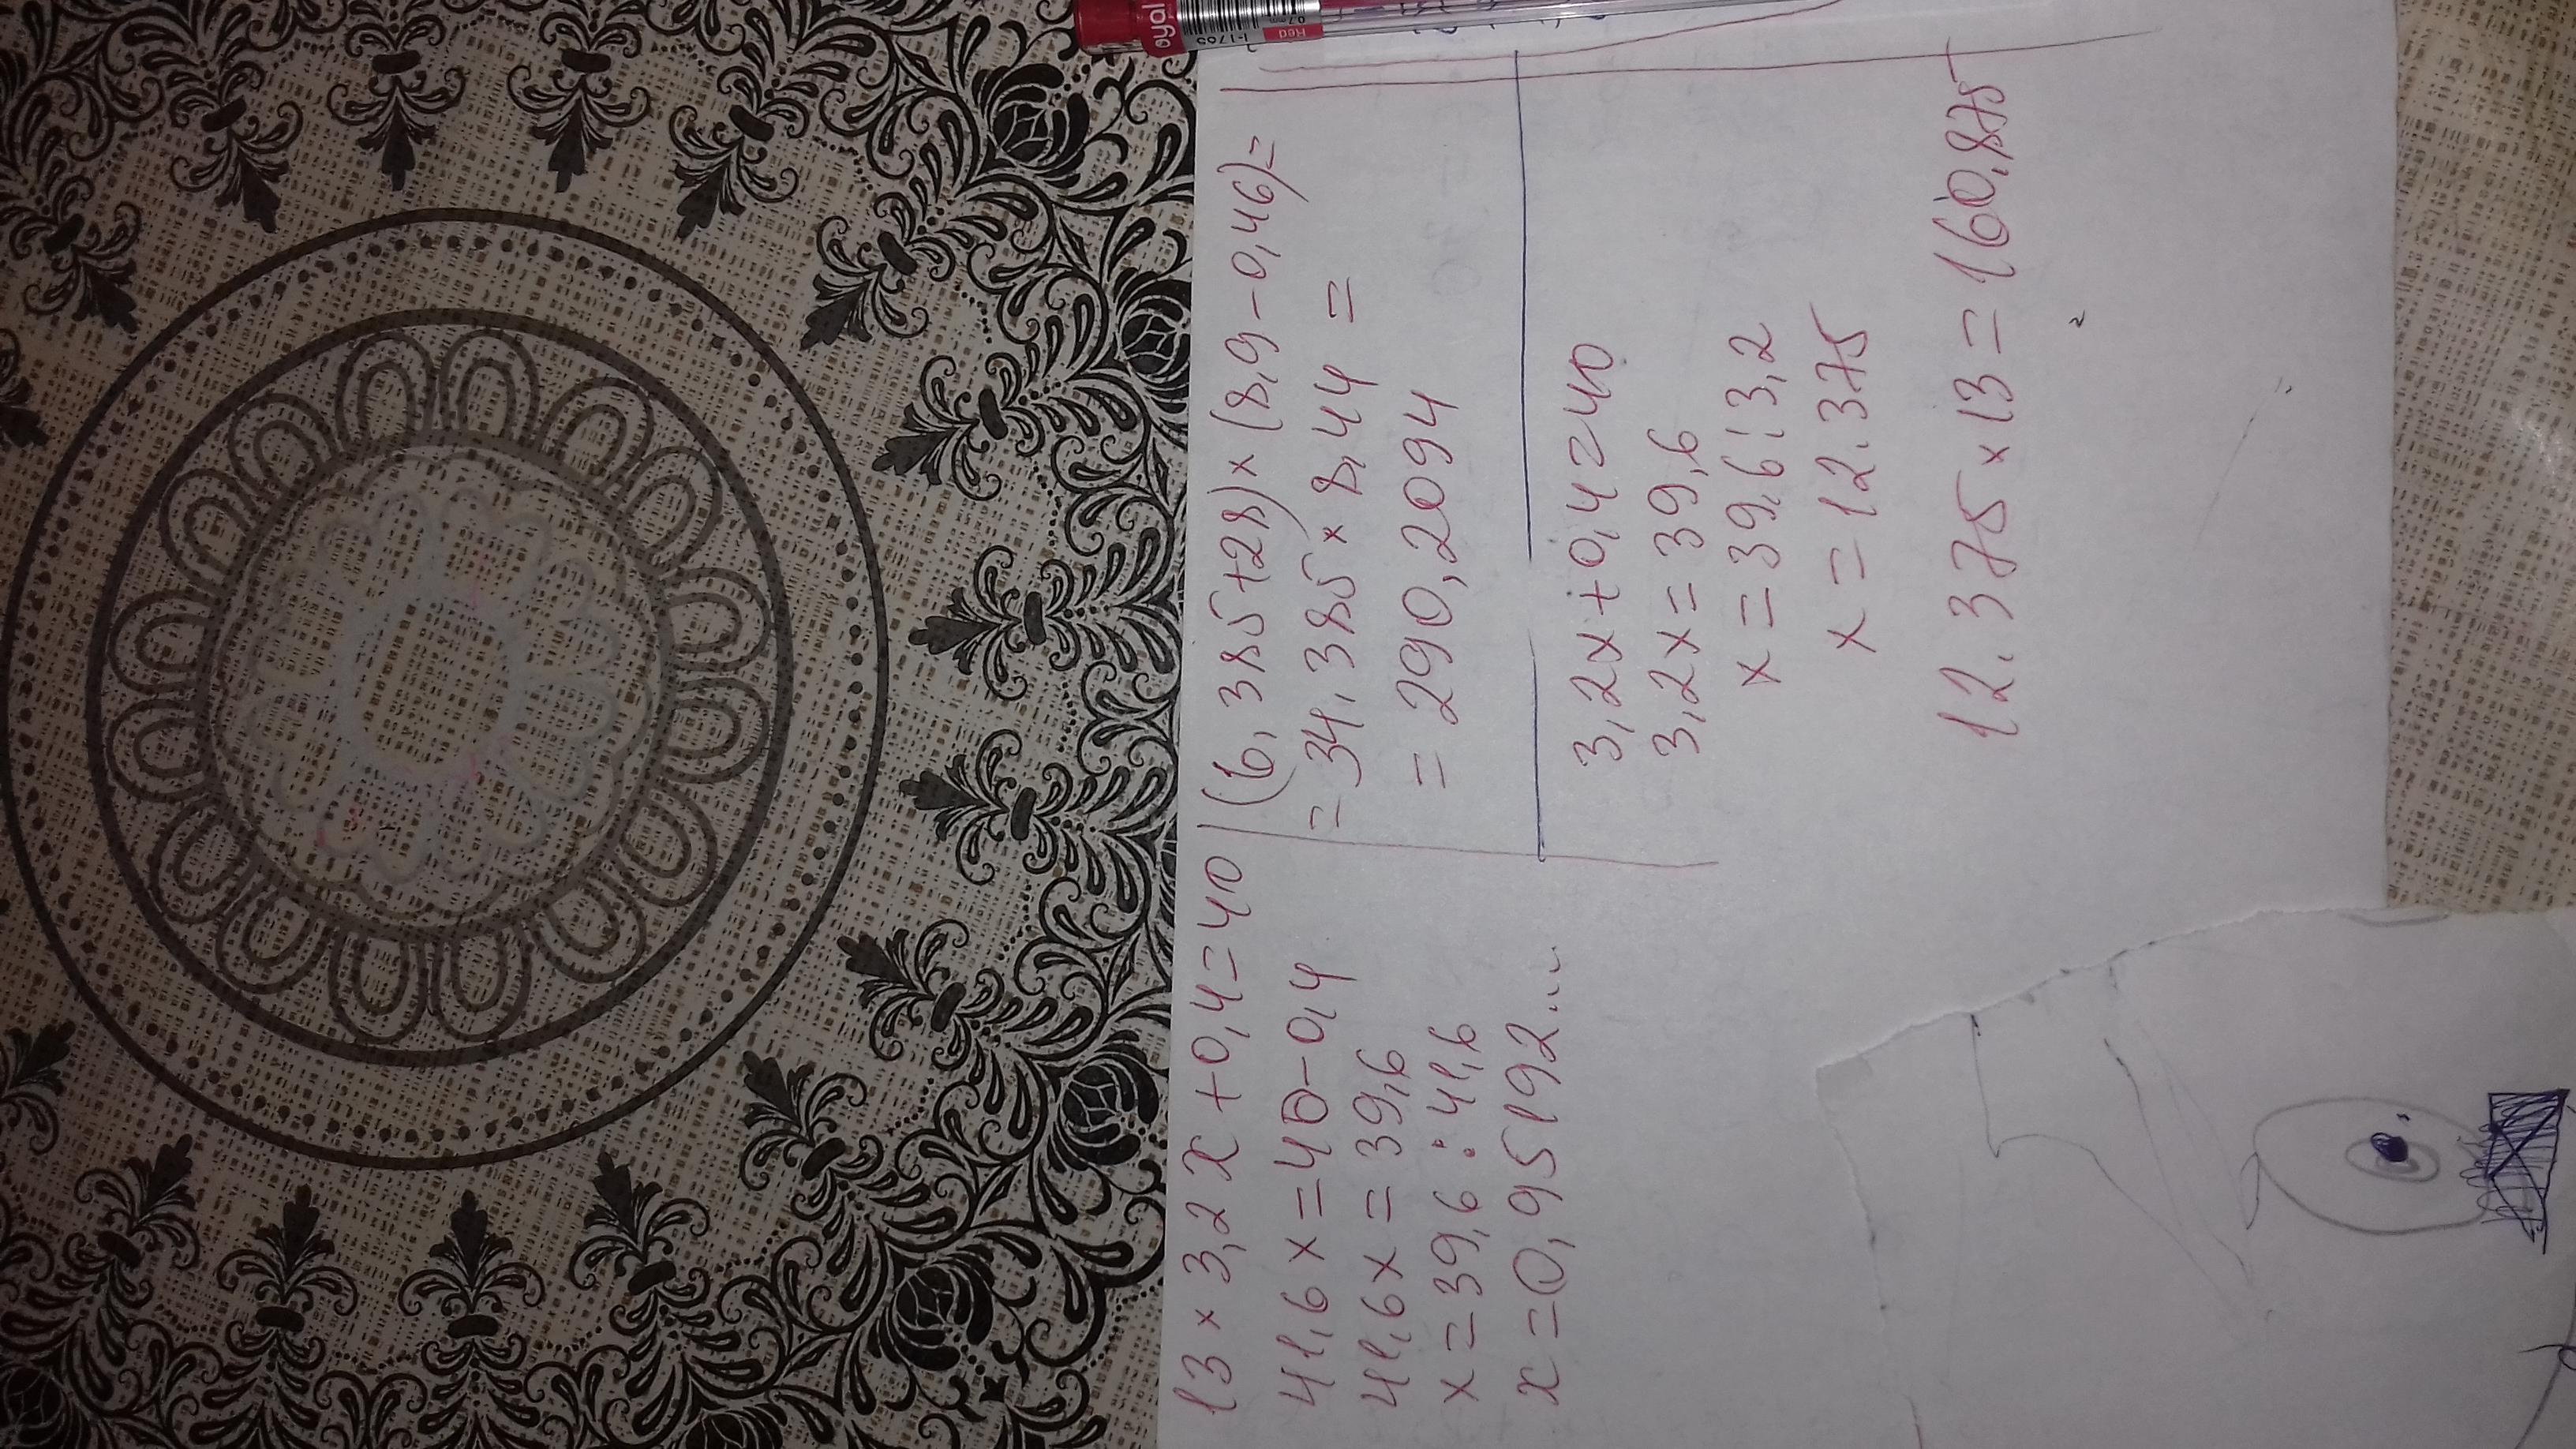 13 × 3,2x + 0,4 = 40
41,6x = 40 - 0,4
41,6x = 39,6
x = 39,6 : 41,6
x = 0,95192...
(6,385 + 28) × (8,9 - 0,46) =
= 34,385 × 8,44 =
= 290,2094
3,2x + 0,4 = 40
3,2x = 39,6
x = 39,6 : 3,2
x = 12.375
12.375 × 13 = 160,875
oyal
I-1765
0.7mm
Red